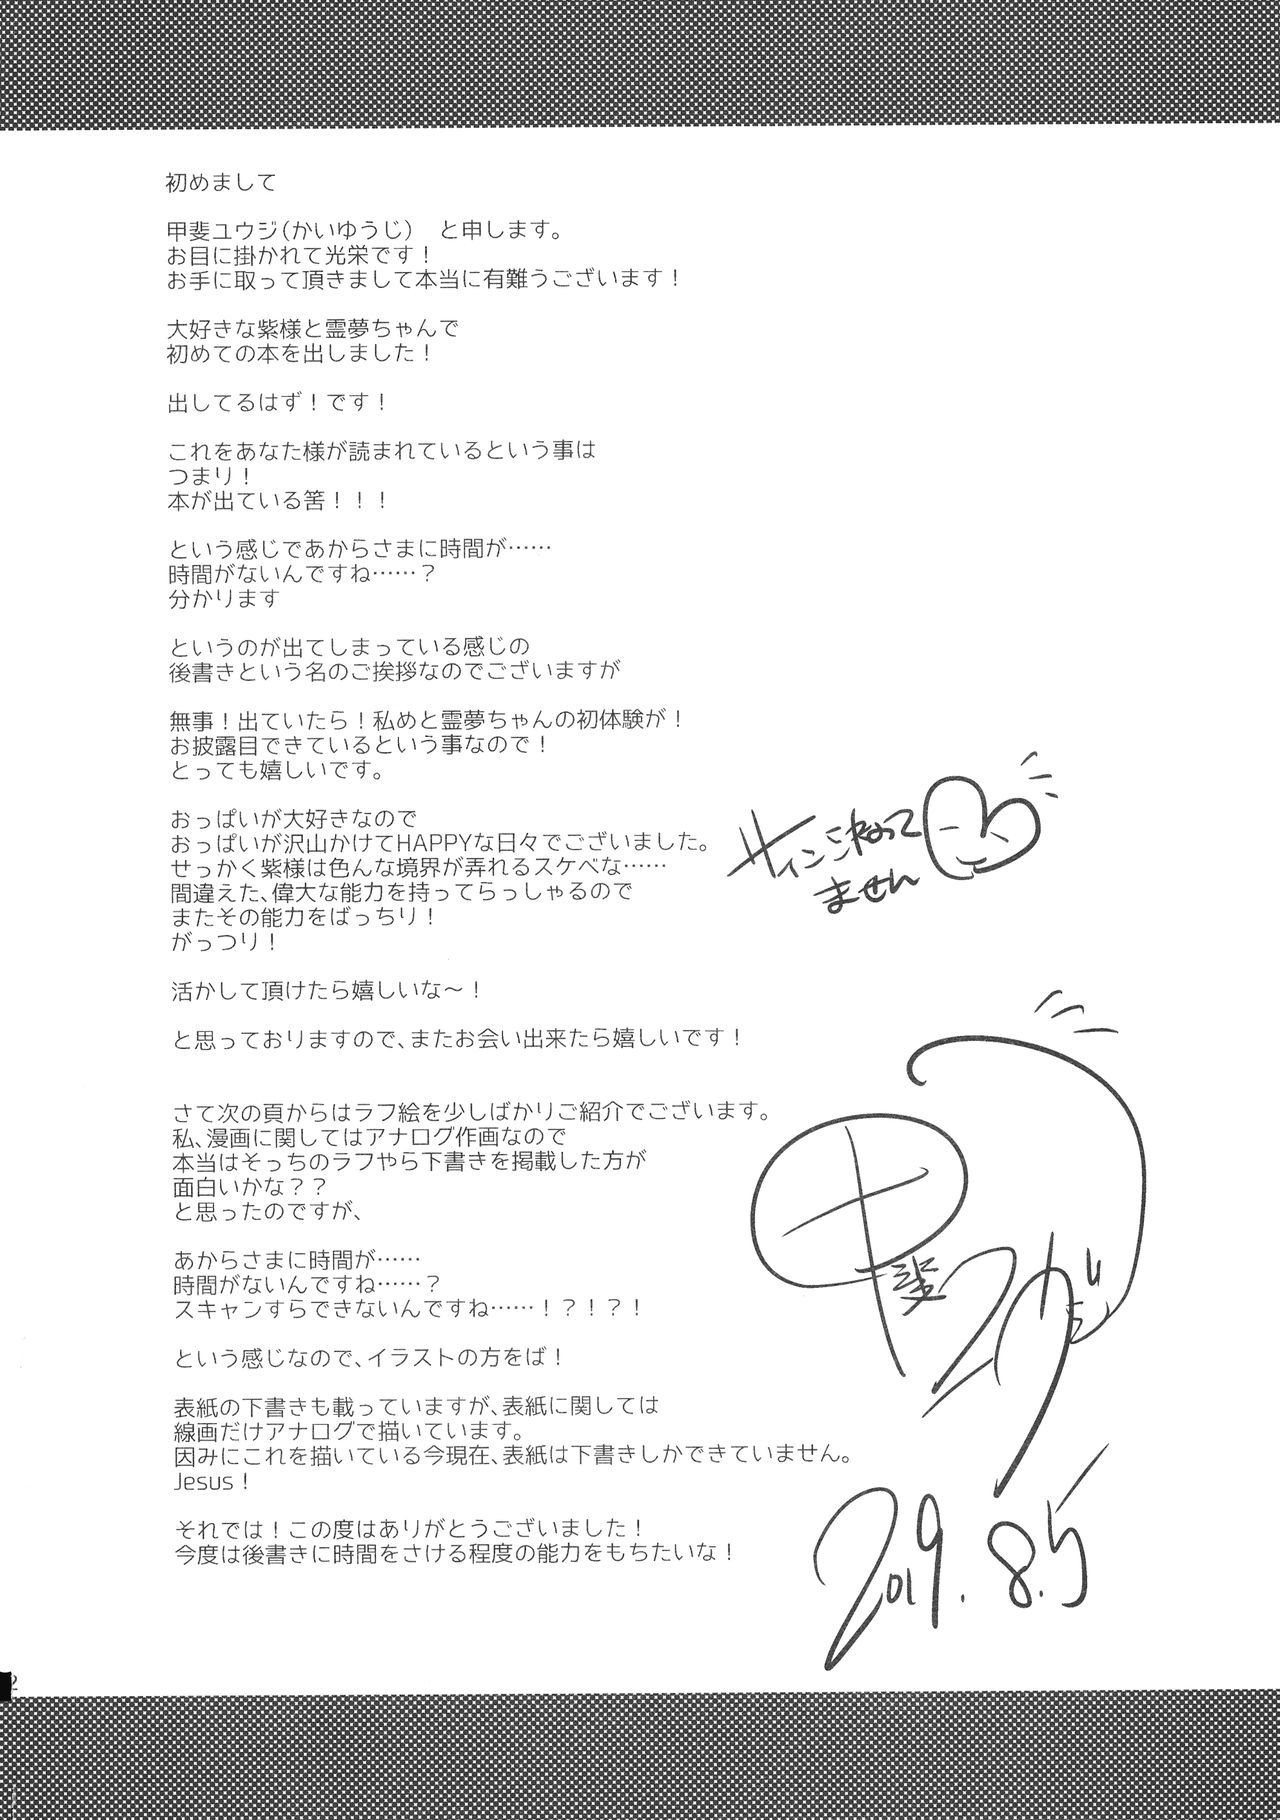 初めまして
甲斐ユウジ(かいゆうじ)　と申します。
お目に掛かれて光栄です！
お手に取って頂きまして本当に有難うございます！
大好きな紫様と霊夢ちゃんで
初めての本を出しました！
出してるはず！です！
これをあなた様が読まれているという事は
つまり！
本が出ている筈！！！
という感じであからさまに時間が……
時間がないんですね……？
分かります
というのが出てしまっている感じの
後書きという名のご挨拶なのでございますが
無事！出ていたら！私めと霊夢ちゃんの初体験が！
お披露目できているという事なので！
とっても嬉しいです。
おっぱいが大好きなので
おっぱいが沢山かけてHAPPYな日々でございました。
せっかく紫様は色んな境界が弄れるスケベな……
間違えた、偉大な能力を持ってらっしゃるので
またその能力をばっちり！
がっつり！
サイン決まって
ません
活かして頂けたら嬉しいな～！
と思っておりますので、またお会い出来たら嬉しいです！
さて次の頁からはラフ絵を少しばかりご紹介でございます。
私、漫画に関してはアナログ作画なので
本当はそっちのラフやら下書きを掲載した方が
面白いかな？？
と思ったのですが、
あからさまに時間が……
時間がないんですね……？
スキャンすらできないんですね……！？！？！
という感じなので、イラストの方をば！
甲斐ユウジ
表紙の下書きも載っていますが、表紙に関しては
線画だけアナログで描いています。
因みにこれを描いている今現在、表紙は下書きしかできていません。
Jesus！
それでは！この度はありがとうございました！
今度は後書きに時間をさける程度の能力をもちたいな！
2019.8.5
2